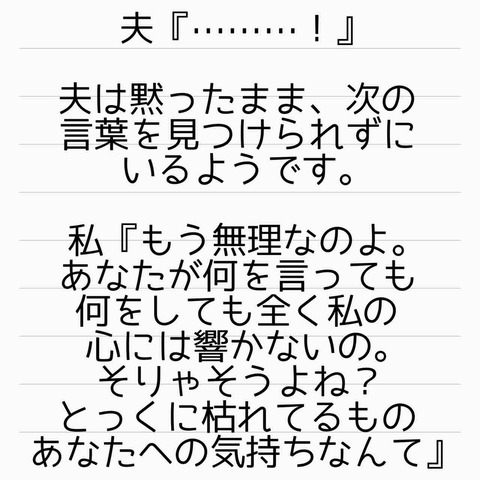 夫『………！』
夫は黙ったまま、次の
言葉を見つけられずに
いるようです。
私『もう無理なのよ。
あなたが何を言っても
何をしても全く私の
心には響かないの。
そりゃそうよね？
とっくに枯れてるもの
あなたへの気持ちなんて』